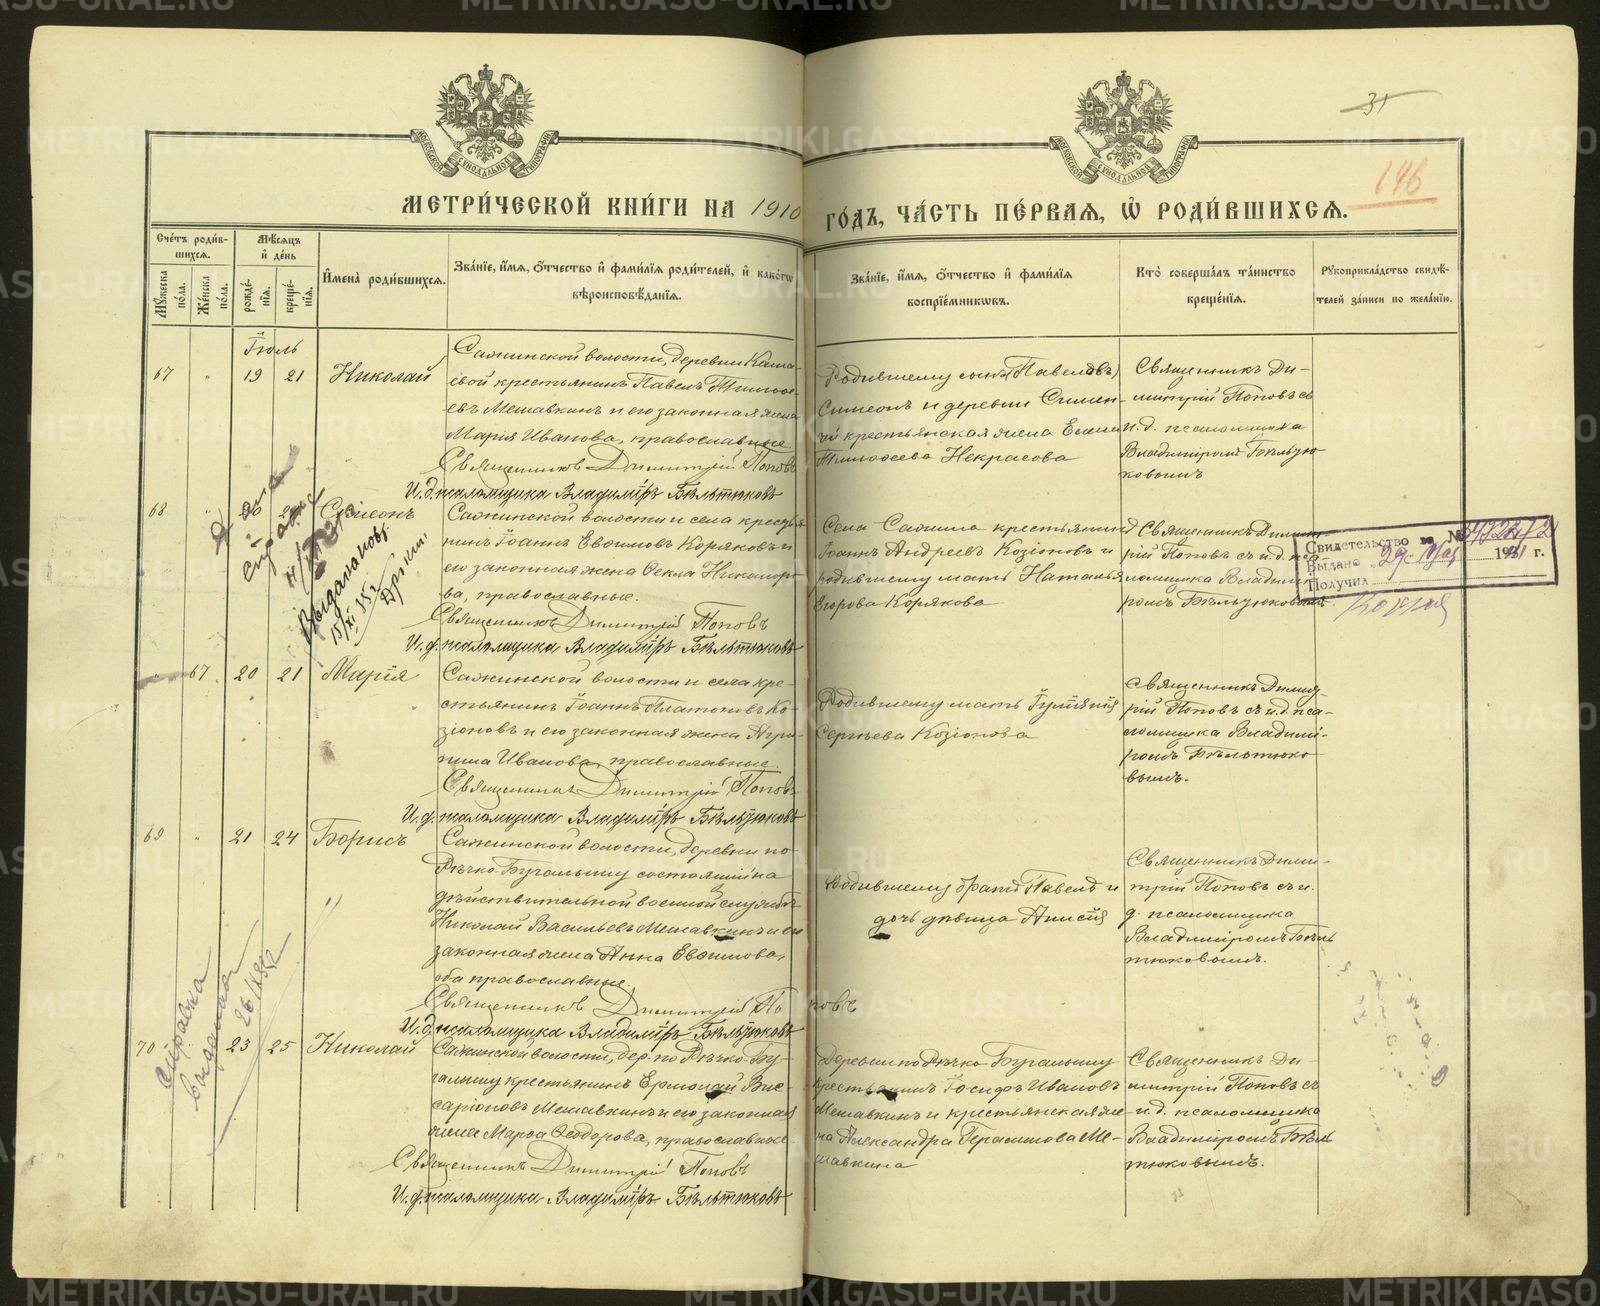 МЕТРИ́ЧЕСКОЙ КНИ́ГИ НА 1910 ГО́ДЪ, ЧА́СТЬ ПЕ́РВАЯ, Ѡ РОДИ́ВШИХСЯ.
146
Счетъ роди́вшихся.
Мꙋ́жеска по́ла.
Же́нска по́ла.
Мѣ́сяцъ и де́нь
рожде́нїѧ.
креще́нїѧ.
Имена̀ роди́вшихсѧ.
Зва́нїе, и́мѧ, ѻ́тчество и фами́лїѧ роди́телей, и како́гѡ
вѣроисповѣ́данїѧ.
Зва́нїе, и́мѧ, ѻ́тчество и фами́лїѧ
воспрїе́мникѡвъ.
Кто̀ соверша́лъ та́инство
креще́нїѧ.
Рꙋкоприкла́дство свидѣ́-
телей за́писи по жела́нїю.
Іюль
67 " 19 21 Николай
Сажинской волости, деревни Каша-
евой крестьянинъ Павелъ Тимофе-
евъ Мешавкинъ и его законная жена
Марія Иванова, православные
Священникъ Димитрій Поповъ
И.д. псаломщика Владиміръ Бѣльтюковъ
Симеонъ и деревни Симен-
чи крестьянская жена Елена
Тимофеева Некрасова
Священникъ Ди-
митрій Поповъ съ
и.д. псаломщика
Владиміромъ Бѣльтю-
ковымъ
68 " 20 Симеонъ
Сажинской волости и села кресть-
нинъ Іоаннъ Евѳимовъ Коряковъ и
его законная жена Ѳекла Никаноро-
ва, православные.
Священникъ Димитрій Поповъ
И.д. псаломщика Владиміръ Бѣльтюковъ
Села Сажина крестьянин
Іоаннъ Андреевъ Козіоновъ и
родившему мать Наталья
Егорова Корякова
Священникъ Димит-
рій Поповъ съ и.д. пса-
ломщика Владимі-
ромъ Бѣльтюковымъ
Свидетельство
Выдано 29 мая 1931 г.
Получил
" 67 20 21 Марія
Сажинской волости и села кре-
стьянинъ Іоаннъ Платоновъ Ко-
зіоновъ и его законная жена Агри-
пина Иванова, православные.
Священникъ Димитрій Поповъ
И.д. псаломщика Владиміръ Бѣльтюковъ
Родившему мать
Сергѣева Козіонова
Священникъ Димит-
рій Поповъ съ и.д. пса-
ломщика Владимі-
ромъ Бѣльтюко-
вымъ.
69 " 21 24 Борисъ
Сажинской волости, деревни по-
Рѣчкѣ-Бугалышу состоящій на
дѣйствительной военной службѣ
Николай Васильевъ Мешавкинъ и его
законная жена Анна Евѳимова,
оба православные.
Священникъ Димитрій Поповъ
И.д. псаломщика Владиміръ Бѣльтюковъ
Родившему братъ Павелъ и
дочь дѣвица Анисія
Священникъ Дими-
трій Поповъ съ и.
д. псаломщика
Владиміромъ Бѣль-
тюковымъ.
Справка
выдана
26/
70 23 25 Николай
Сажинской волости, дер. по Рѣчкѣ-Бу-
галышу крестьянинъ Ермолай Вис-
саріоновъ Мешавкинъ и его законная
жена Марѳа Ѳеодорова, православные.
Священникъ Димитрій Поповъ
И.д. псаломщика Владиміръ Бѣльтюковъ
Деревни по Рѣчкѣ-Бугалышу
крестьянинъ Іосифъ Ивановъ
Мешавкинъ и крестьянская же-
на Александра Герасимова Ме-
шавкина
Священникъ Ди-
митрій Поповъ съ
и.д. псаломщика
Владиміромъ Бѣль-
тюковымъ.
METRIKI.GASO-URAL.RU